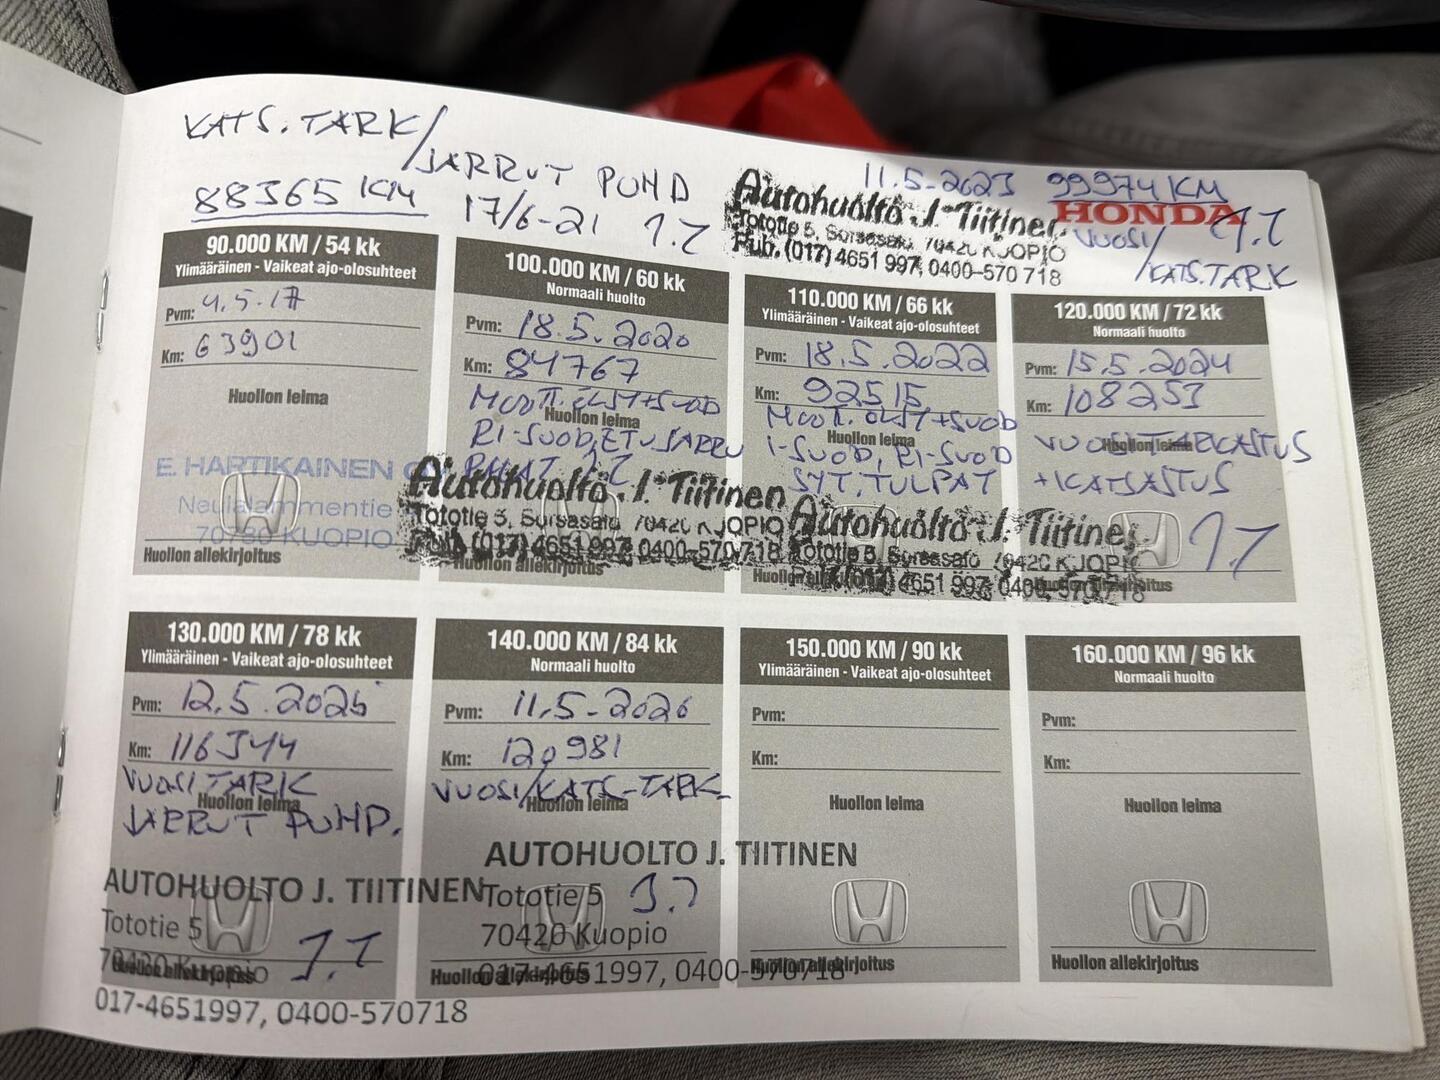 KATS.TARK/
JARRUT PUHD
88365 KM 17/6-21 J.T
Autohuolto J. Tiitinen
Tototie 5, Sorsasalo, 70420 KUOPIO
Puh. (017) 4651 997, 0400-570 718
11.5-2023 99974 KM
HONDA
VUOSI/ J.T
KATS.TARK
90.000 KM / 54 kk
Ylimääräinen - Vaikeat ajo-olosuhteet
Pvm: 4.5.17
Km: 63901
Huollon leima
E. HARTIKAINEN
Neulalammentie
70780 KUOPIO
Huollon allekirjoitus
100.000 KM / 60 kk
Normaali huolto
Pvm: 18.5.2020
Km: 84767
MOOT.ÖLJY+SUOD
Huollon leima
RI-SUOD, ETUJARRU
PALAT J.T
Autohuolto J. Tiitinen
Tototie 5, Sorsasalo, 70420 KUOPIO
Puh. (017) 4651 997, 0400-570 718
Huollon allekirjoitus
110.000 KM / 66 kk
Ylimääräinen - Vaikeat ajo-olosuhteet
Pvm: 18.5.2022
Km: 92515
MOOT.ÖLJY+SUOD
Huollon leima
I-SUOD, RI-SUOD
SYT.TULPAT
Autohuolto J. Tiitinen
Tototie 5, Sorsasalo, 70420 KUOPIO
Puh. (017) 4651 997, 0400-570 718
120.000 KM / 72 kk
Normaali huolto
Pvm: 15.5.2024
Km: 108253
Huollon leima
VUOSITARKASTUS
+KATSASTUS
J.T
Huollon allekirjoitus
130.000 KM / 78 kk
Ylimääräinen - Vaikeat ajo-olosuhteet
Pvm: 12.5.2025
Km: 116344
VUOSITARK
Huollon leima
JARRUT PUHD.
AUTOHUOLTO J. TIITINEN
Tototie 5
70420 Kuopio J.T
Huollon allekirjoitus
017-4651997, 0400-570718
140.000 KM / 84 kk
Normaali huolto
Pvm: 11.5-2026
Km: 120981
VUOSI/KATS-TARK
Huollon leima
AUTOHUOLTO J. TIITINEN
Tototie 5 J.T
70420 Kuopio
017-4651997, 0400-570718
Huollon allekirjoitus
150.000 KM / 90 kk
Ylimääräinen - Vaikeat ajo-olosuhteet
Pvm:
Km:
Huollon leima
Huollon allekirjoitus
160.000 KM / 96 kk
Normaali huolto
Pvm:
Km:
Huollon leima
Huollon allekirjoitus